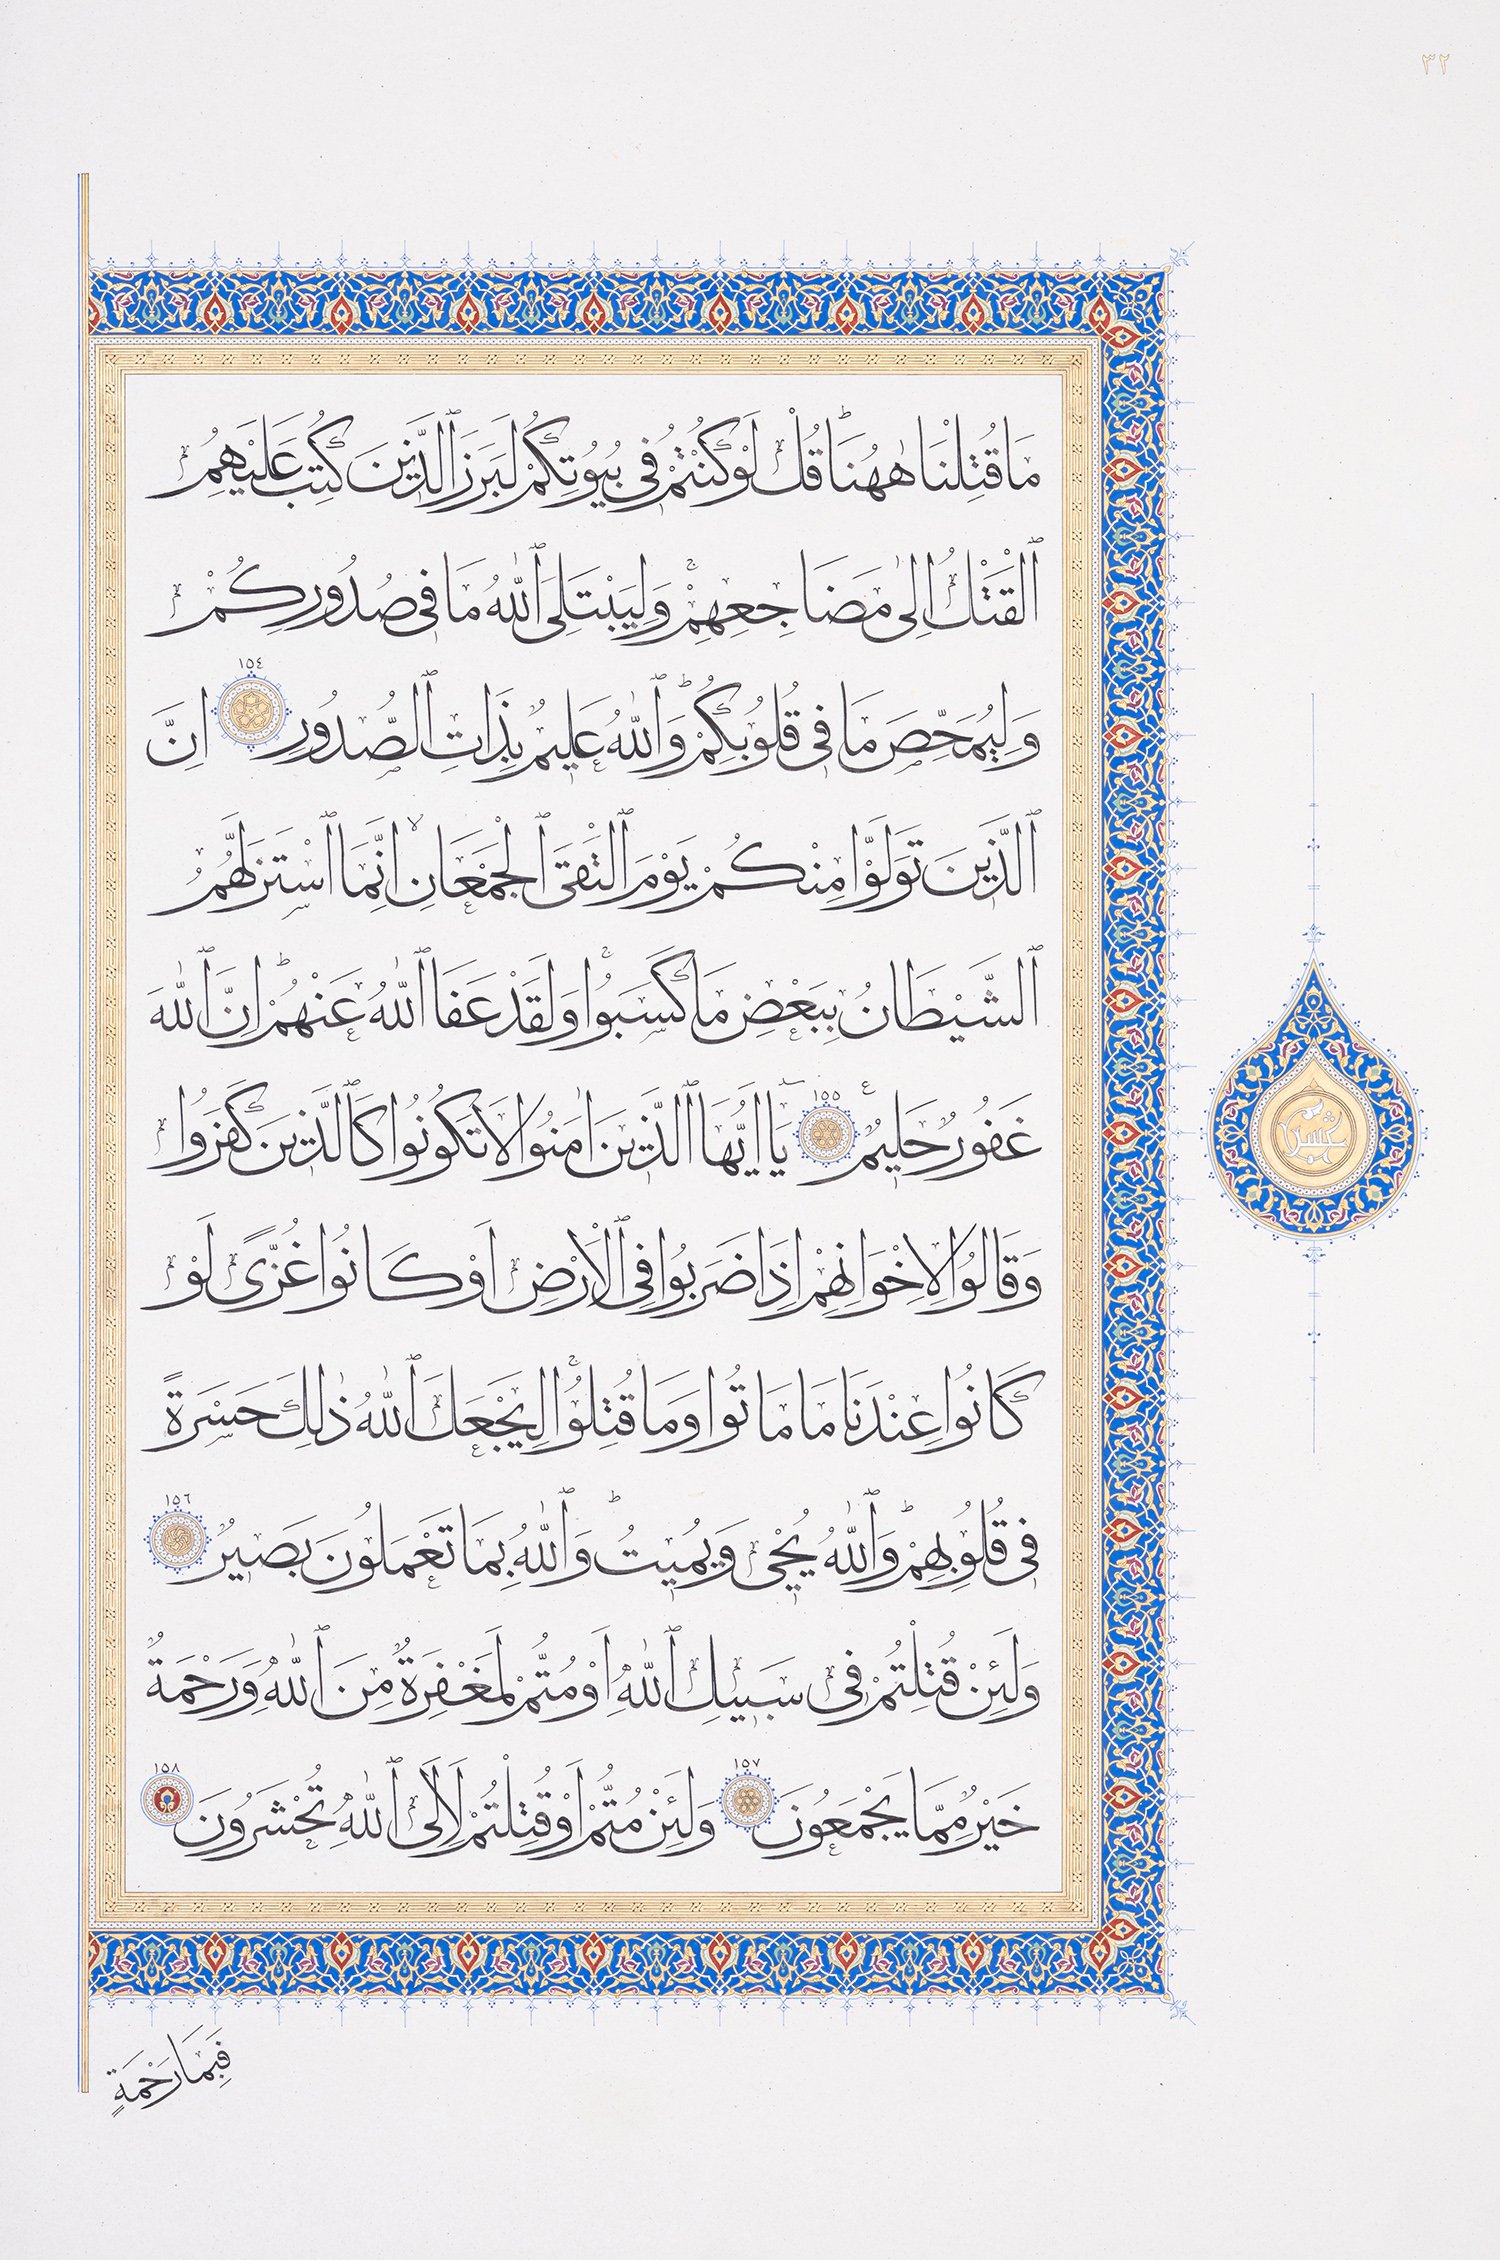 ٣٢
مَا قُتِلْنَا هٰهُنَاۜ قُلْ لَوْ كُنْتُمْ فٖى بُيُوتِكُمْ لَبَرَزَ ٱلَّذٖينَ كُتِبَ عَلَيْهِمُ
ٱلْقَتْلُ اِلٰى مَضَاجِعِهِمْۚ وَلِيَبْتَلِىَ ٱللّٰهُ مَا فٖى صُدُورِكُمْ
وَلِيُمَحِّصَ مَا فٖى قُلُوبِكُمْۜ وَٱللّٰهُ عَلٖيمٌ بِذَاتِ ٱلصُّدُورِ ١٥٤ اِنَّ
ٱلَّذٖينَ تَوَلَّوْا مِنْكُمْ يَوْمَ ٱلْتَقَى ٱلْجَمْعَانِۙ اِنَّمَا ٱسْتَزَلَّهُمُ
ٱلشَّيْطَانُ بِبَعْضِ مَا كَسَبُواۚ وَلَقَدْ عَفَا ٱللّٰهُ عَنْهُمْۜ اِنَّ ٱللّٰهَ
غَفُورٌ حَلٖيمٌ ١٥٥ يَٓا اَيُّهَا ٱلَّذٖينَ اٰمَنُوا لَا تَكُونُوا كَٱلَّذٖينَ كَفَرُوا
وَقَالُوا لِاِخْوَانِهِمْ اِذَا ضَرَبُوا فِى ٱلْاَرْضِ اَوْ كَانُوا غُزًّى لَوْ
كَانُوا عِنْدَنَا مَا مَاتُوا وَمَا قُتِلُواۚ لِيَجْعَلَ ٱللّٰهُ ذٰلِكَ حَسْرَةً
فٖى قُلُوبِهِمْۜ وَٱللّٰهُ يُحْيٖى وَيُمٖيتُۜ وَٱللّٰهُ بِمَا تَعْمَلُونَ بَصٖيرٌ ١٥٦
وَلَئِنْ قُتِلْتُمْ فٖى سَبٖيلِ ٱللّٰهِ اَوْ مُتُّمْ لَمَغْفِرَةٌ مِنَ ٱللّٰهِ وَرَحْمَةٌ
خَيْرٌ مِمَّا يَجْمَعُونَ ١٥٧ وَلَئِنْ مُتُّمْ اَوْ قُتِلْتُمْ لَاِلَى ٱللّٰهِ تُحْشَرُونَ ١٥٨
فَبِمَا رَحْمَةٍ